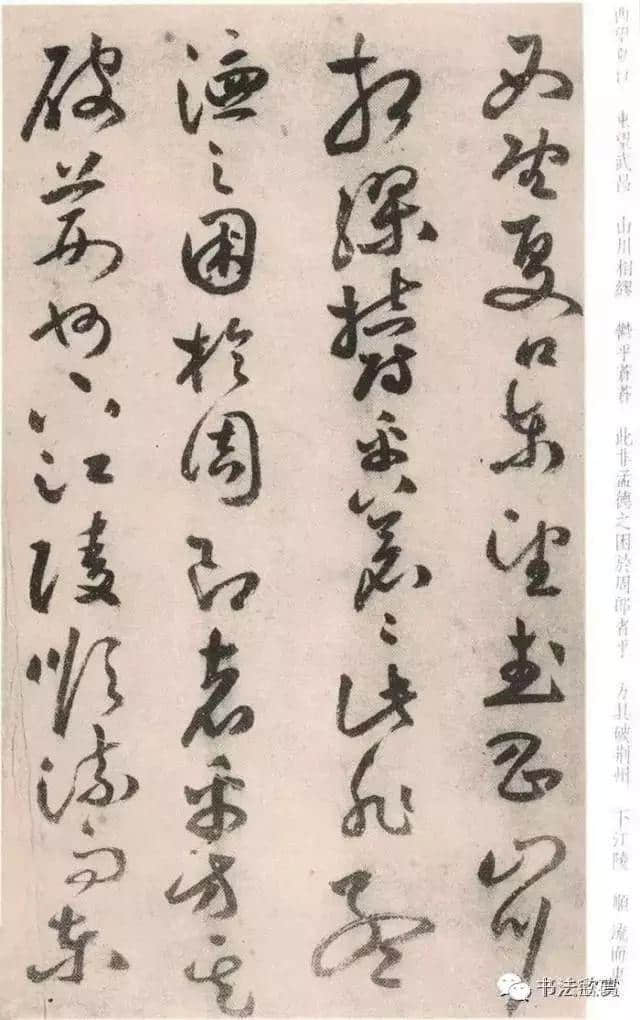 西望夏口 東望武昌 山川相繆 欝乎蒼蒼 此非孟德之困於周郎者乎 方其破荊州 下江陵 順流而東
西望夏口東望武昌山川
相繆欝乎蒼々此非孟
德之困於周郎者乎方其
破荊州下江陵順流而東
书法欣赏